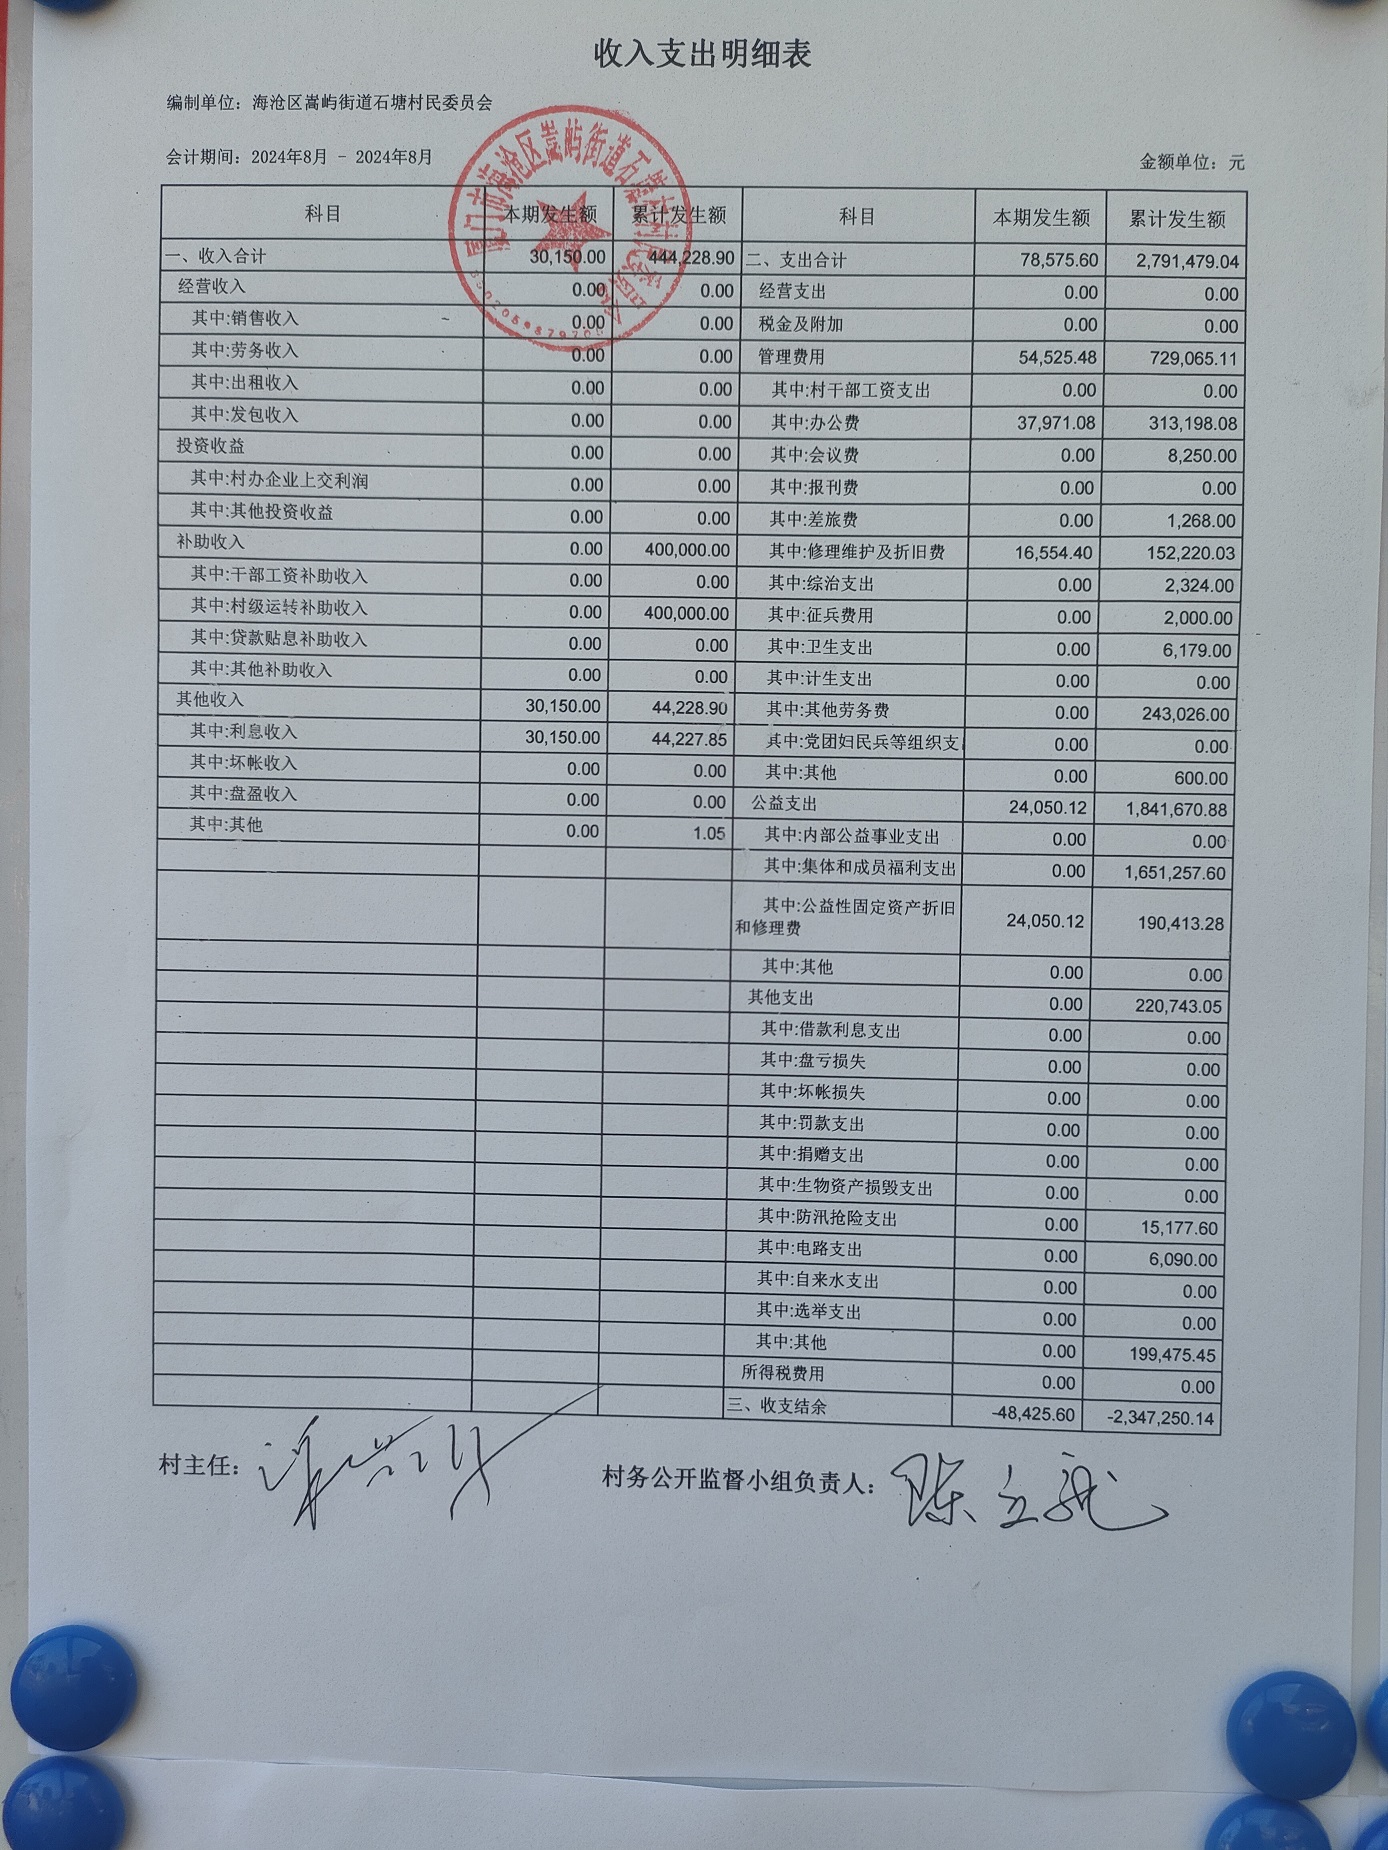 收入支出明细表
编制单位：海沧区嵩屿街道石塘村民委员会
会计期间：2024年8月 - 2024年8月 金额单位：元
科目 本期发生额 累计发生额 科目 本期发生额 累计发生额
一、收入合计 30,150.00 444,228.90 二、支出合计 78,575.60 2,791,479.04
经营收入 0.00 0.00 经营支出 0.00 0.00
其中:销售收入 0.00 0.00 税金及附加 0.00 0.00
其中:劳务收入 0.00 0.00 管理费用 54,525.48 729,065.11
其中:出租收入 0.00 0.00 其中:村干部工资支出 0.00 0.00
其中:发包收入 0.00 0.00 其中:办公费 37,971.08 313,198.08
投资收益 0.00 0.00 其中:会议费 0.00 8,250.00
其中:村办企业上交利润 0.00 0.00 其中:报刊费 0.00 0.00
其中:其他投资收益 0.00 0.00 其中:差旅费 0.00 1,268.00
补助收入 0.00 400,000.00 其中:修理维护及折旧费 16,554.40 152,220.03
其中:干部工资补助收入 0.00 0.00 其中:综治支出 0.00 2,324.00
其中:村级运转补助收入 0.00 400,000.00 其中:征兵费用 0.00 2,000.00
其中:贷款贴息补助收入 0.00 0.00 其中:卫生支出 0.00 6,179.00
其中:其他补助收入 0.00 0.00 其中:计生支出 0.00 0.00
其他收入 30,150.00 44,228.90 其中:其他劳务费 0.00 243,026.00
其中:利息收入 30,150.00 44,227.85 其中:党团妇民兵等组织支 0.00 0.00
其中:坏帐收入 0.00 0.00 其中:其他 0.00 600.00
其中:盘盈收入 0.00 0.00 公益支出 24,050.12 1,841,670.88
其中:其他 0.00 1.05 其中:内部公益事业支出 0.00 0.00
其中:集体和成员福利支出 0.00 1,651,257.60
其中:公益性固定资产折旧
和修理费 24,050.12 190,413.28
其中:其他 0.00 0.00
其他支出 0.00 220,743.05
其中:借款利息支出 0.00 0.00
其中:盘亏损失 0.00 0.00
其中:坏帐损失 0.00 0.00
其中:罚款支出 0.00 0.00
其中:捐赠支出 0.00 0.00
其中:生物资产损毁支出 0.00 0.00
其中:防汛抢险支出 0.00 15,177.60
其中:电路支出 0.00 6,090.00
其中:自来水支出 0.00 0.00
其中:选举支出 0.00 0.00
其中:其他 0.00 199,475.45
所得税费用 0.00 0.00
三、收支结余 -48,425.60 -2,347,250.14
村主任： 村务公开监督小组负责人：陈立龙
厦门市海沧区嵩屿街道石塘村村民委员会